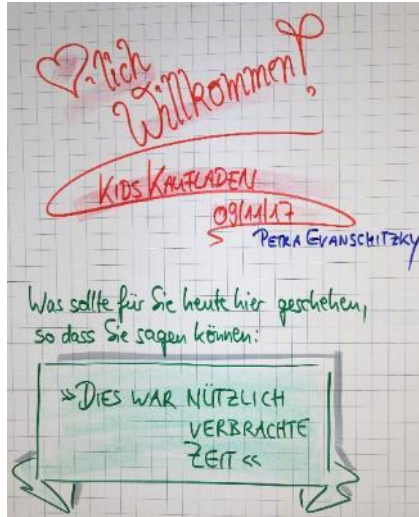 ♡-lich
Willkommen!
KIDS KAUFLADEN
09/11/17
PETRA EVANSCHITZKY
Was sollte für Sie heute hier geschehen,
so dass Sie sagen können:
»DIES WAR NÜTZLICH
VERBRACHTE
ZEIT«